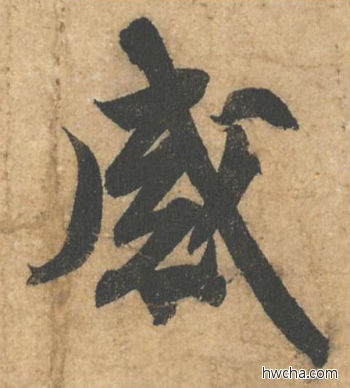 威
hwcha.com